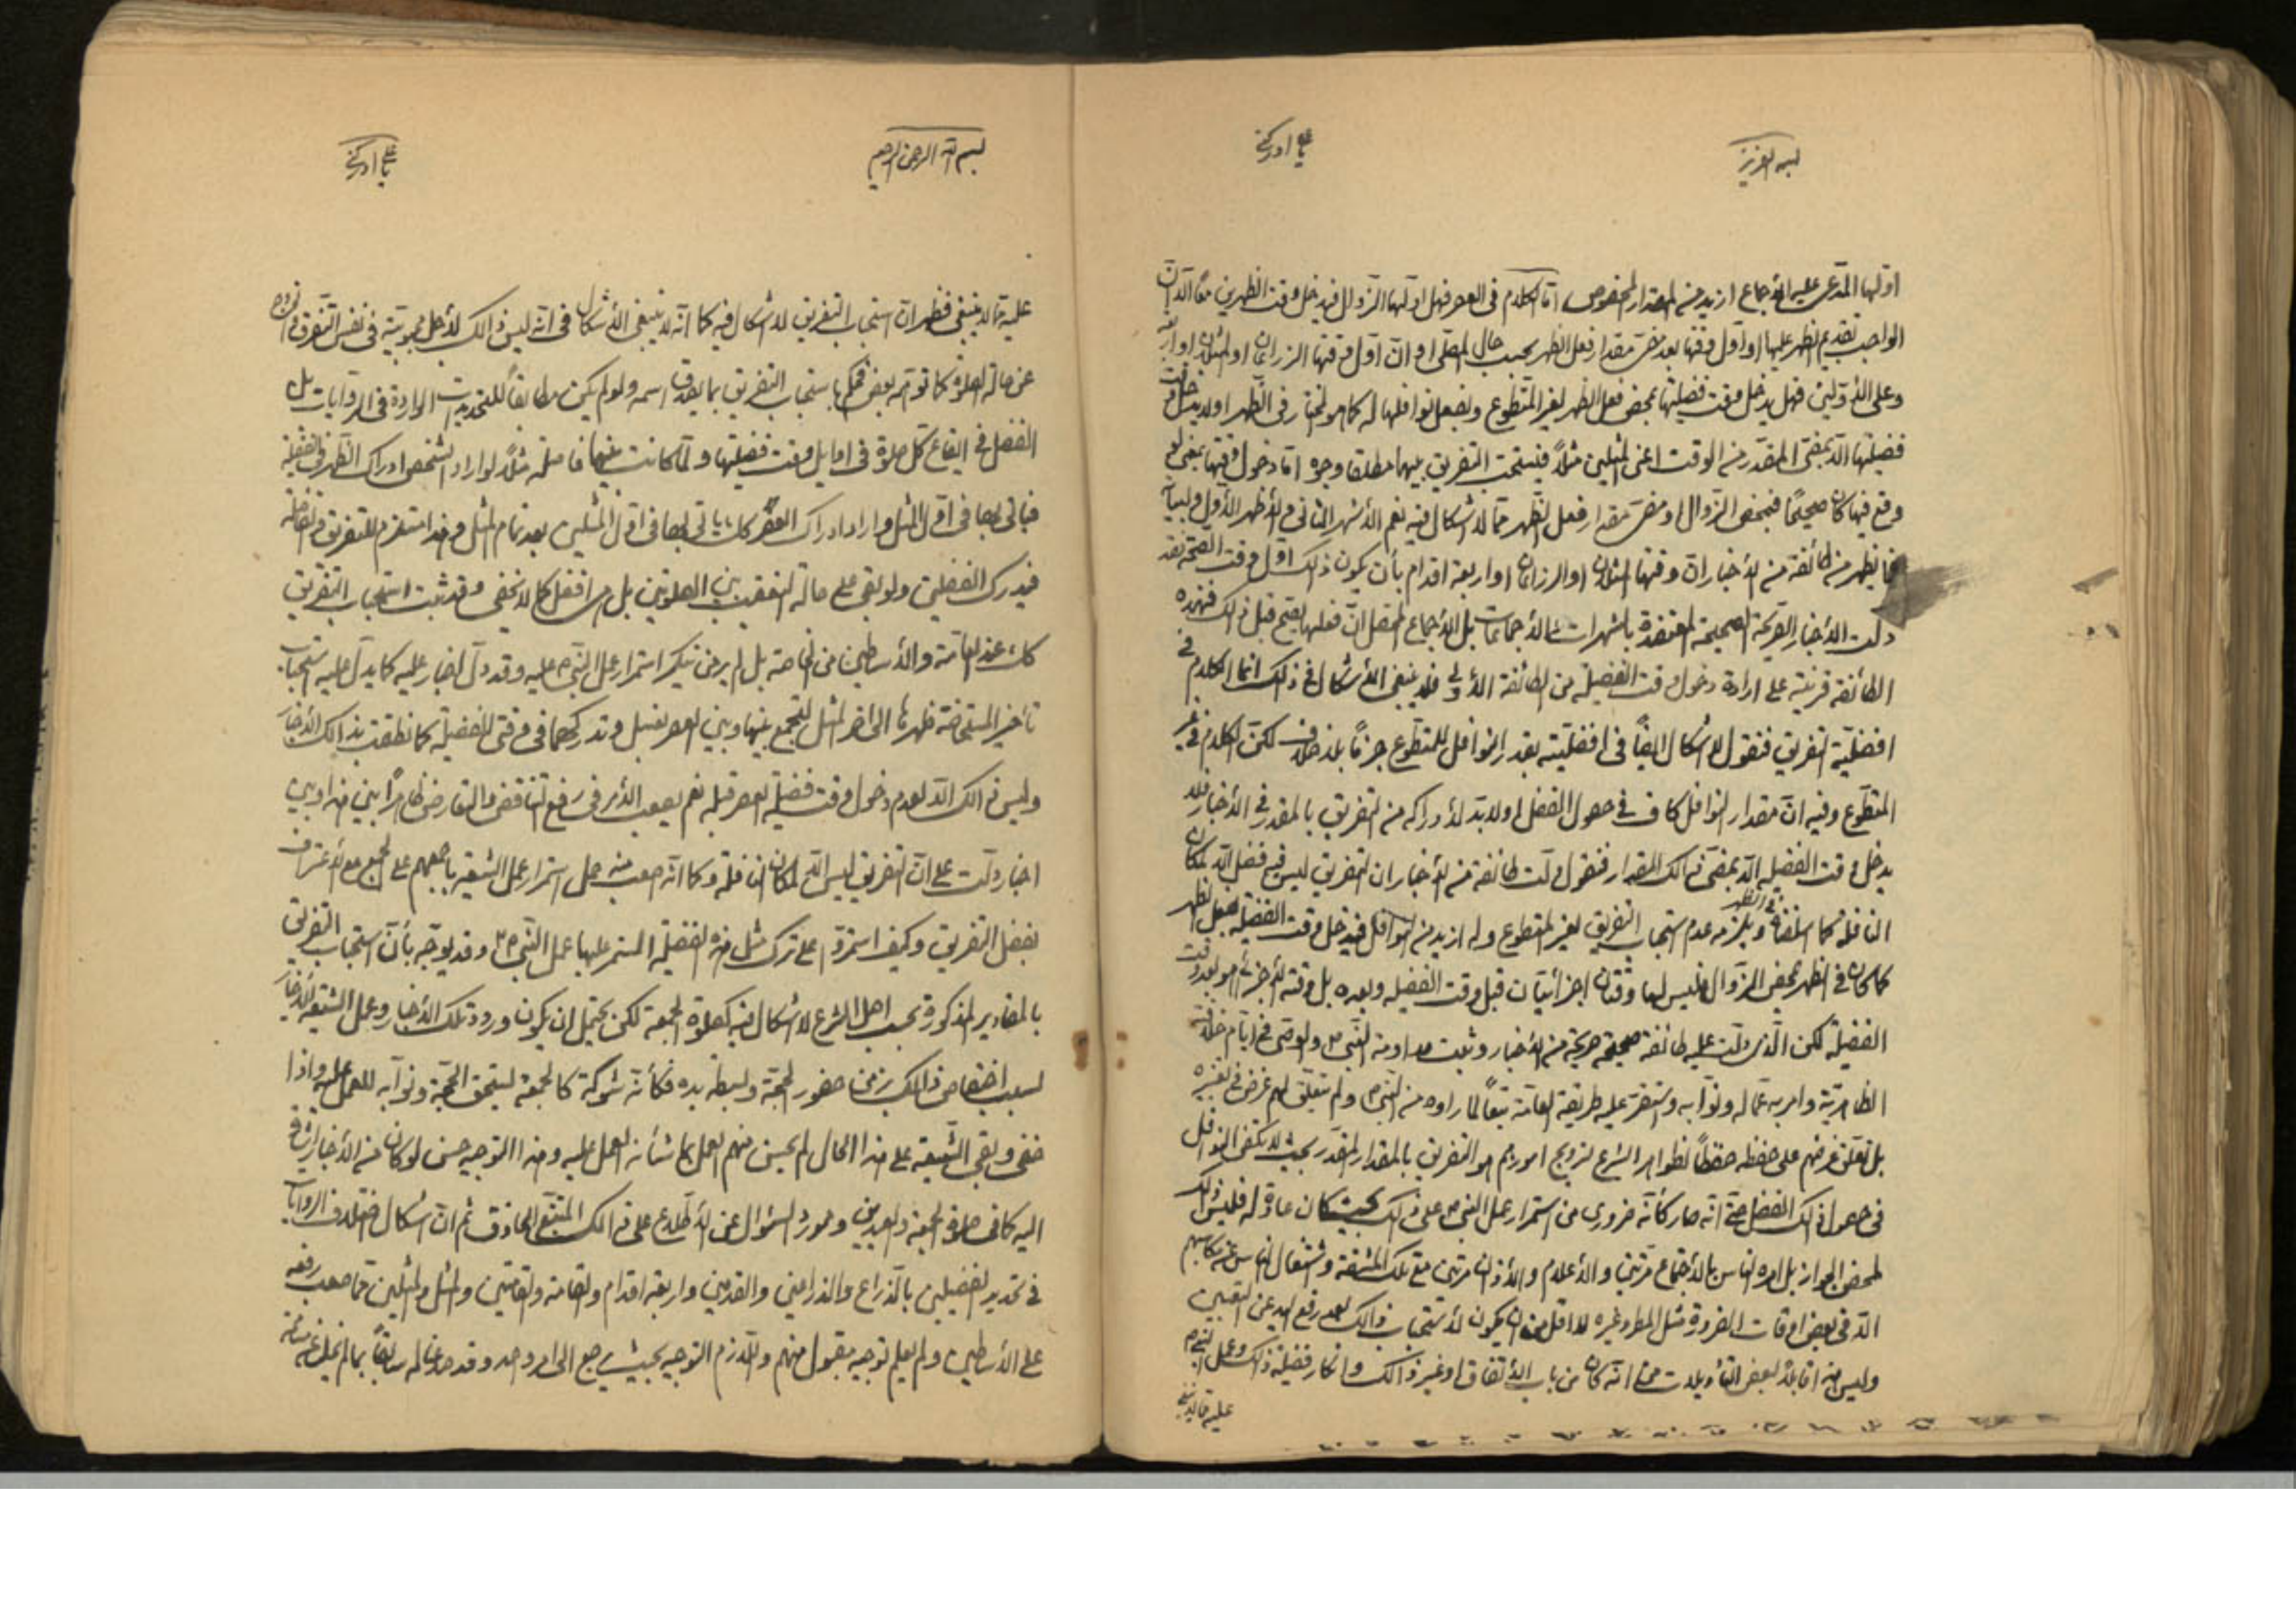 بسم العزيز
يا علي ادركني
اولها المدعى عليه الاجماع ازيد من المقدار المخصوص اما الكلام في العصر فهل اولها الزوال فيدخل وقت الظهرين معًا الا ان
الواجب تقديم الظهر عليها او اول وقتها بعد مضي مقدار فعل الظهر بحسب حال المصلي او ان اول وقتها الزراعان او المثلان او اربعة
وعلى الاولين فهل يدخل وقت فضيلتها بمحض فعل الظهر لغير المتطوع وبفعل نوافلها له كما هو المختار في الظهر او لا يدخل وقت
فضيلتها الا بمضي المقدر من الوقت اعني المثلين مثلاً فيستحب التفريق بينهما مطلقا وجوه اما دخول وقتها بمعنى لو
وقع فيها كان صحيحًا فبمحض الزوال او مضي مقدار فعل الظهر مما لا اشكال فيه نعم الاشهر الثاني والاظهر الاول ولبيان
ما يظهر من طائفة من الاخبار ان وقتها المثلان او الزراعان او اربعة اقدام بأن يكون ذلك اول وقت الصحة فقد
دلت الاخبار الصريحة الصحيحة المعتضدة بالشهرات والاجماعات بل الاجماع المحصل ان فعلها يصح قبل ذلك فهذه
الطائفة قرينة على ارادة دخول وقت الفضيلة من الطائفة الاولى فلا ينبغي الاشكال في ذلك انما الكلام في
افضلية التفريق فنقول لا اشكال ايضًا في افضليته بقدر النوافل للمتطوع جزمًا بلا خلاف لكن الكلام في غير
المتطوع وفيه ان مقدار النوافل كاف في حصول الفضل او لا بد لادراكه من التفريق بالمقدر في الاخبار فلا
يدخل وقت الفضيلة الا بمضي ذالك المقدار فنقول دلت طائفة من الاخبار ان التفريق ليس فيه فضل الا لمكان
النافلة كما اسلفناه في الظهر ويلزمه عدم استحباب التفريق لغير المتطوع وله ازيد من النوافل فيدخل وقت الفضيلة بفعل الظهر
كما كان في الظهر بمحض الزوال فليس لها وقتان اجزائيان قبل وقت الفضيلة وبعده بل وقته الاجزائي هو بعد وقت
الفضيلة لكن الذي دلت عليه طائفة صحيحة صريحة من الاخبار وثبت مداومة النبي ص والوصي في ايام خلافته
الظاهرية وامر به عماله ونوابه واستقر عليه طريقة العامة تبعًا لما راوه من النبي ص ولم يتعلق لهم غرض في تغييره
بل تعلق غرضهم على حفظه حفظًا لظواهر الشرع لترويج امورهم هو التفريق بالمقدار المقدر بحيث لا يكتفى النوافل
في حصول ذلك الفضل حتى انه صار كأنه ضروري من استمرار عمل النبي ص على ذلك بحيث كان عادة له فليس ذلك
لمحض الجواز بل امره الناس بالاجتماع مرتين والاعلام والاذان مرتين مع تلك المشقة واشتغال الناس عن مكاسبهم
الا في بعض اوقات الضرورة مثل المطر وغيره لا اقل من ان يكون لاستحباب ذالك بعد رفع اليد عن التعيين
وليس هذا قابلاً لبعض التأويلات من انه كان من باب الاتفاق او غير ذالك وانكار فضيلة ذلك وعمل النبي ص
عليه مما لا ينبغي
بسم الله الرحمن الرحيم
يا علي ادركني
عليه مما لا ينبغي فظهر ان استحباب التفريق لا اشكال فيه كما انه لا ينبغي الاشكال في انه ليس ذالك لاجل محبوبية في نفس التفرق
عن حالة الصلوة كما توهمه بعض فحكم باستحباب التفريق بما يصدق اسمه ولو لم يكن مطابقاً للتحديدات الواردة في الروايات بل
الفضل في ايقاع كل صلوة في اوايل وقت فضيلتها ولما كانت بينهما فاصلة مثلاً لو اراد الشخص ادراك الظهر في الفضيلة
فياتي بها في اول المثل واراد ادراك العصر كك ياتي بها في اول المثلين بعد تمام المثل وهذا مستلزم للتفريق
فيدرك الفضلين ولو بقي على حالة التعقيب بين الصلوتين بل هي افضل كما لا يخفى وقد ثبت استحباب التفريق
كك عند العامة والاساطين من الخاصة بل لم يرض نكير استمرار عمل النبي ص عليه وقد دل اخبار عليه كما يدل عليه استحباب
تأخير المستحاضة ظهرها الى اخر المثل لتجمع بينها وبين العصر بغسل وتدركهما في وقتي الفضيلة كما نطقت بذالك الاخبار
وليس ذالك الا لعدم دخول وقت فضيلة العصر قبله نعم يصعب الامر في رفع التناقض والتعارض ظاهرًا بين هذا وبين
اخبار دلت على ان التفريق ليس الا لمكان النافلة وكما انه صعب منه حمل استمرار عمل الشيعة باجمعهم على الجمع مع الاعتراف
بفضل التفريق وكيف استمروا على ترك مثل هذه الفضيلة المستمر عليها عمل النبي ص وقد يوجه بأن استحباب التفريق
بالمقادير المذكورة بحسب اصل الشرع لا اشكال فيه كصلوة الجمعة لكن يحتمل ان يكون ورود تلك الاخبار وعمل الشيعة
لسبب اختصاص ذالك بزمن حضور الحجة وبسطة يده فكأنه شوكة كالجمعة يستحق الحجة ونوابه للعمل عليه واذا
خفي وبقي الشيعة على هذا الحال لم يحسن منهم العمل بما شأنه العمل عليه وهذا التوجيه حسن لو كان من الاخبار اشارة
اليه كما في صلوة الجمعة والعيدين ومورد السؤال عن الاطلاع على ذالك المتتبع الحاذق ثم ان اشكال اختلاف الروايات
في تحديد الفضيلين بالذراع والذراعين والقدمين واربعة اقدام والقامة والقامتين والمثل والمثلين مما صعب رفعه
على الاساطين ولم يعلم توجيه مقبول منهم واللازم التوجيه بحيث يرجع الى امر واحد وقد سابقاً بما لم يخل عن